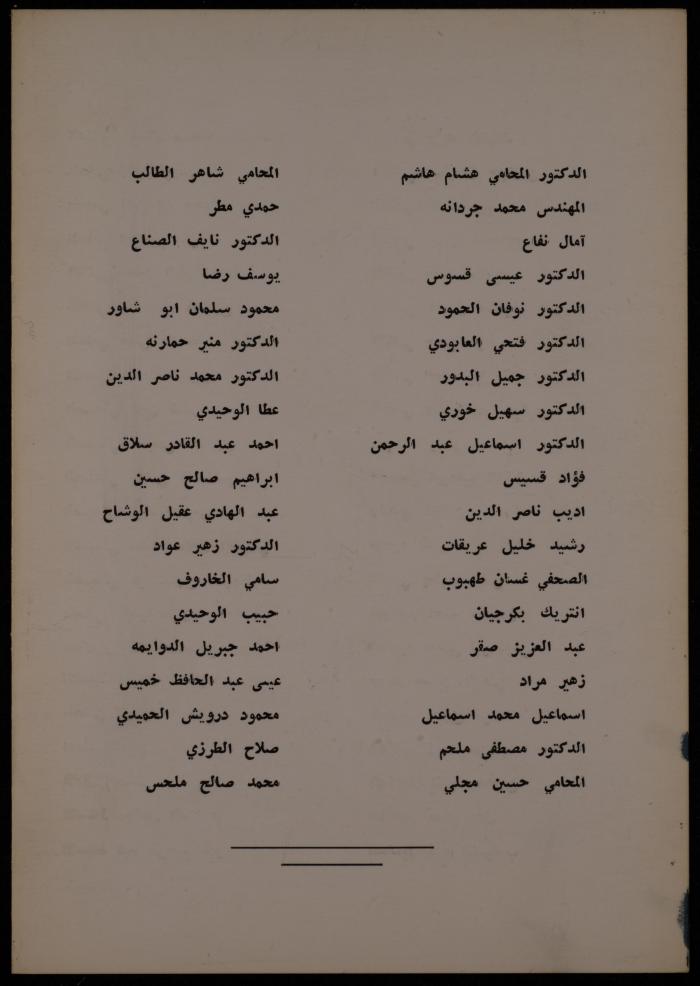 الدكتور المحامي هشام هاشم
المهندس محمد جردانه
آمال نفاع
الدكتور عيسى قسوس
الدكتور نوفان الحمود
الدكتور فتحي العابودي
الدكتور جميل البدور
الدكتور سهيل خوري
الدكتور اسماعيل عبد الرحمن
فؤاد قسيس
اديب ناصر الدين
رشيد خليل عريقات
الصحفي غسان طهبوب
انتريك بكرجيان
عبد العزيز صقر
زهير مراد
اسماعيل محمد اسماعيل
الدكتور مصطفى ملحم
المحامي حسين مجلي
المحامي شاهر الطالب
حمدي مطر
الدكتور نايف الصناع
يوسف رضا
محمود سلمان ابو شاور
الدكتور منير حمارنه
الدكتور محمد ناصر الدين
عطا الوحيدي
احمد عبد القادر سلاق
ابراهيم صالح حسين
عبد الهادي عقيل الوشاح
الدكتور زهير عواد
سامي الخاروف
حبيب الوحيدي
احمد جبريل الدوايمه
عيسى عبد الحافظ خميس
محمود درويش الحميدي
صلاح الطرزي
محمد صالح ملحس